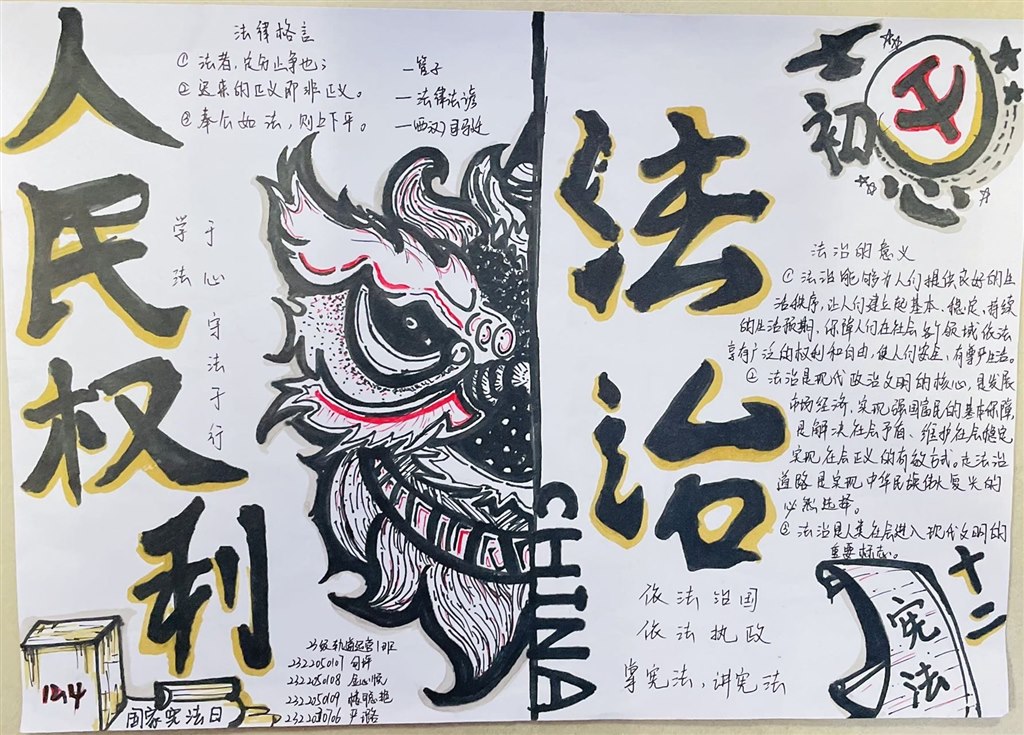 人民权利
法律格言
①法者,定分止争也;
—管子
②迟来的正义即非正义。
—法律法谚
③奉公如法,则上下平。
—(西汉)司马迁
学法于心
守法于行
CHINA
法治
初心
法治的意义
①法治能够为人们提供良好的生
活秩序,让人们建立起基本、稳定、持续
的生活预期,保障人们在社会各个领域依法
享有广泛的权利和自由,使人们安全、有尊严生活。
②法治是现代政治文明的核心,是发展
市场经济,实现强国富民的基本保障,
是解决社会矛盾、维护社会稳定
实现社会正义的有效方式。走法治
道路是实现中华民族伟大复兴的
必然选择。
③法治是人类社会进入现代文明的
重要标志。
依法治国
依法执政
掌宪法,讲宪法
十二
宪法
12.4
国家宪法日
23级轨道运营1班
2322050107
2322050108
2322050109
严璐